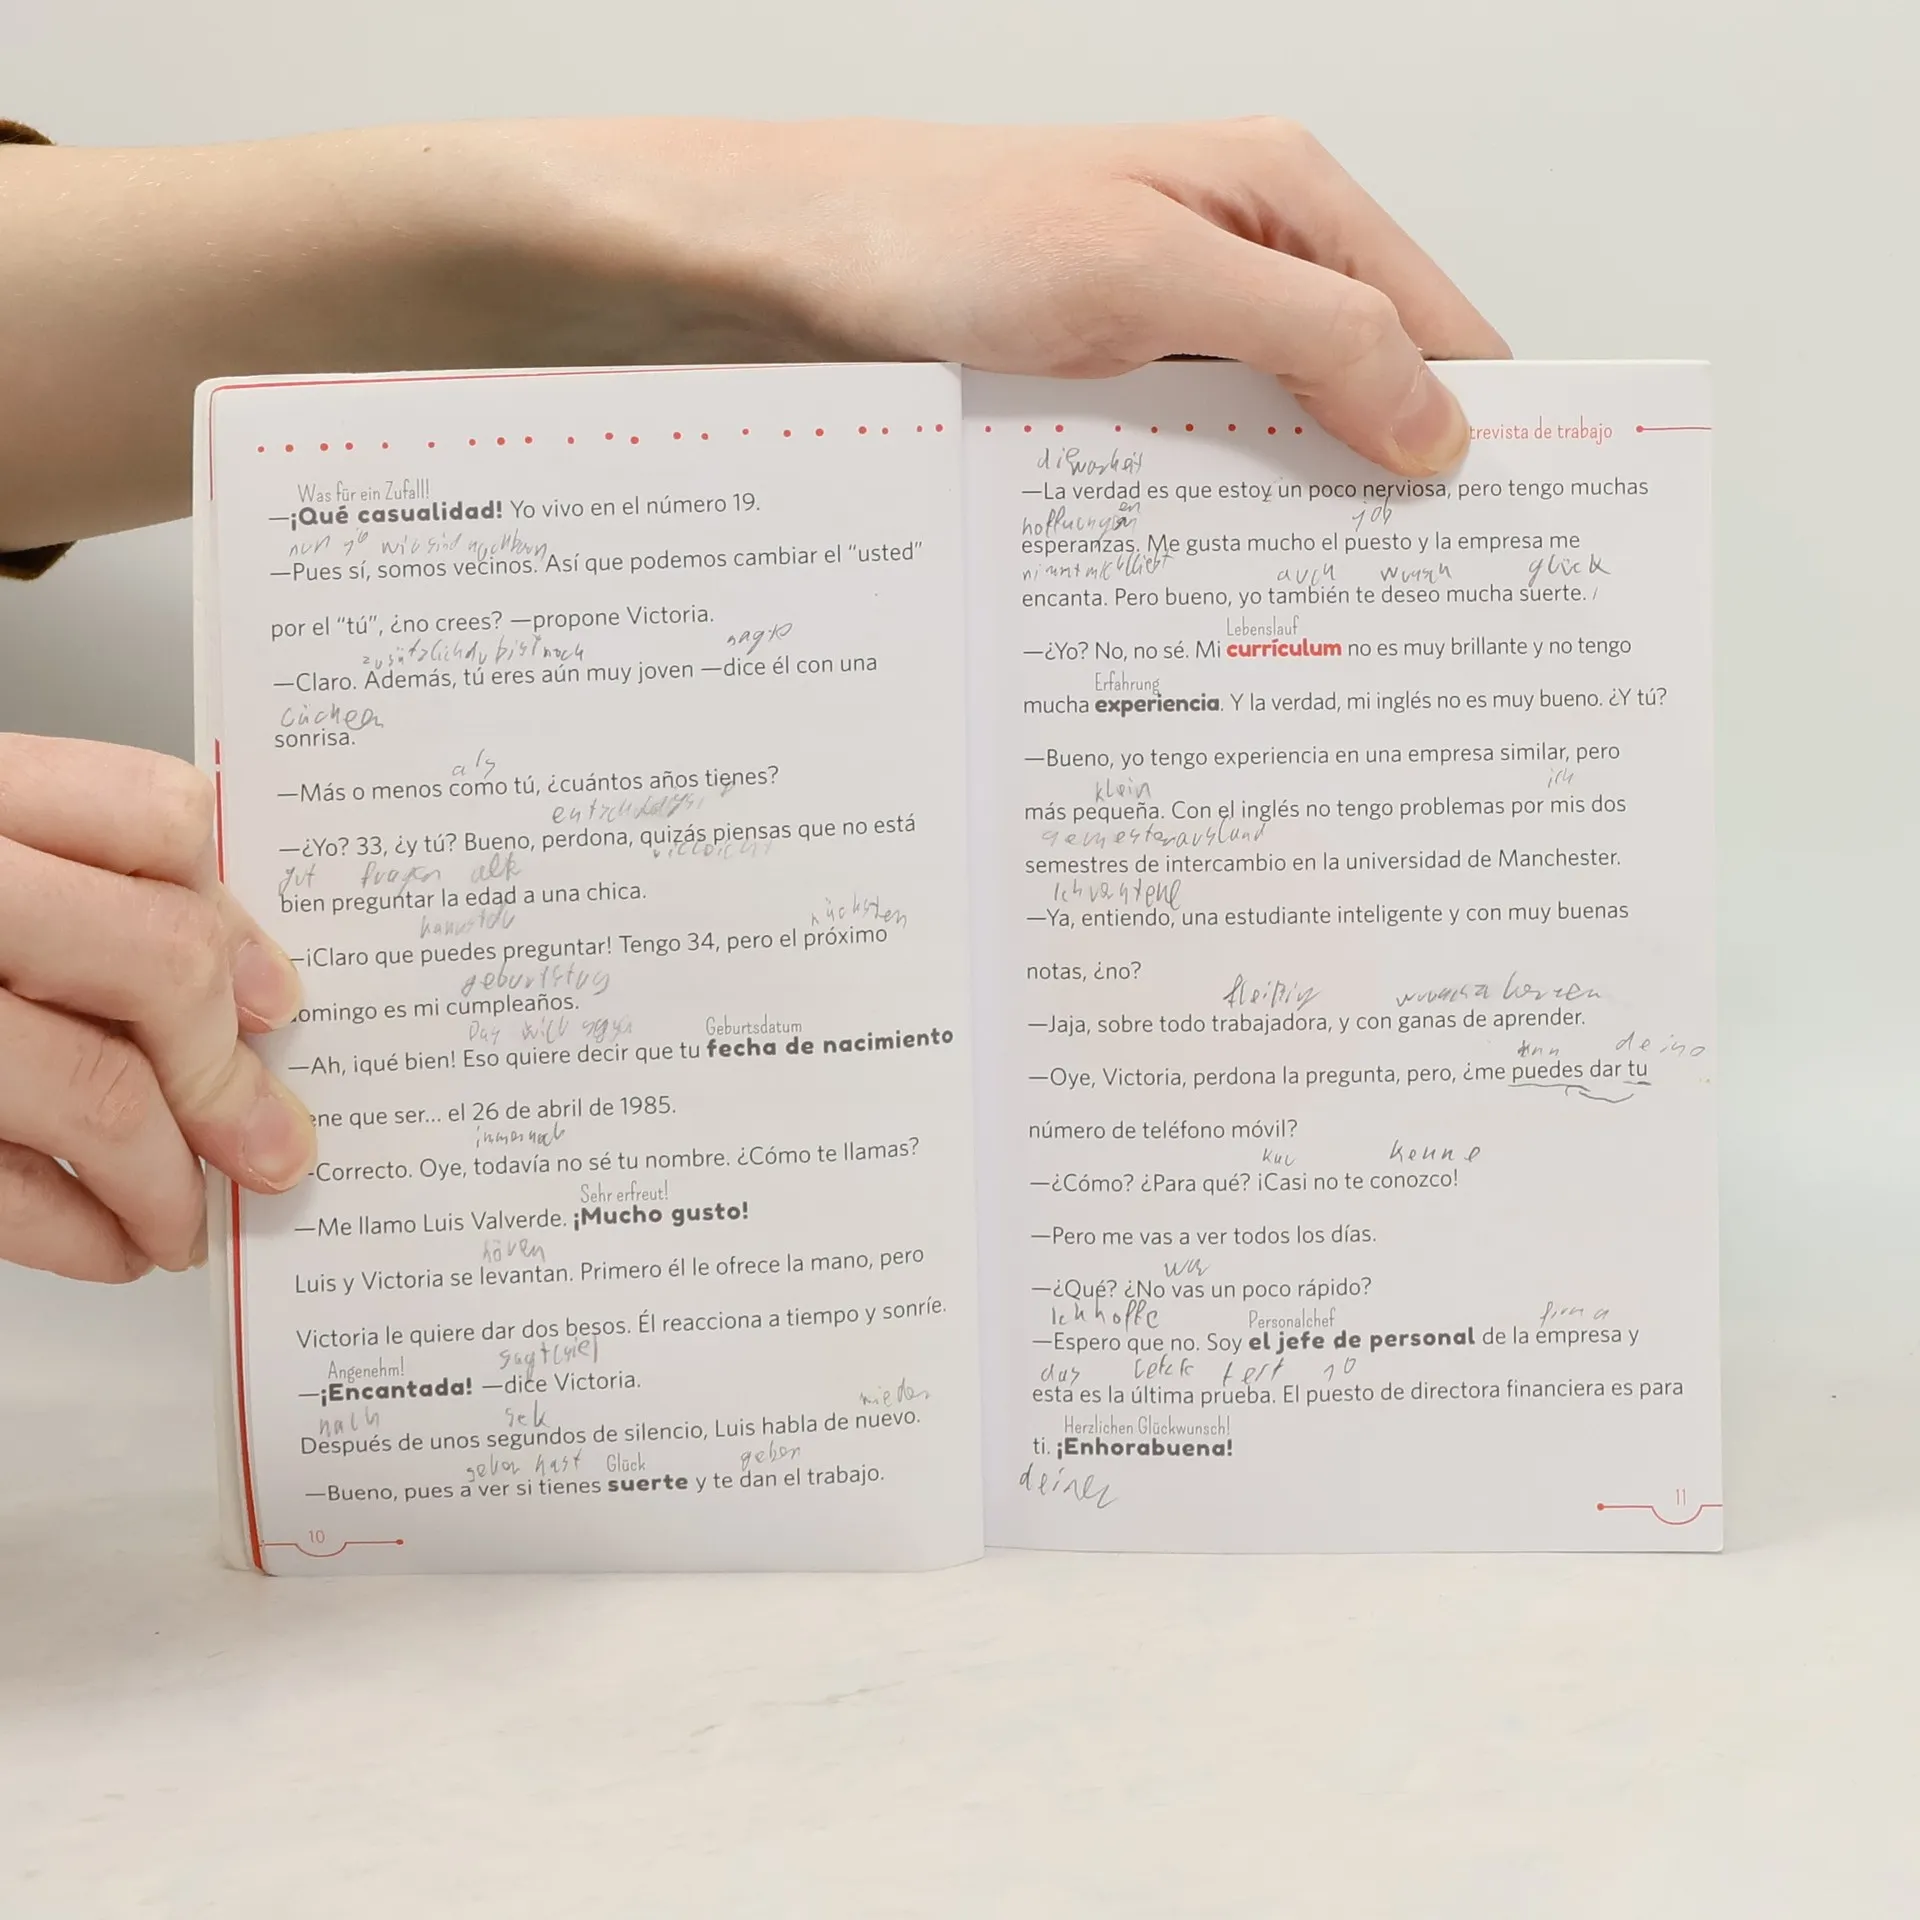 Was für ein Zufall!
—¡Qué casualidad! Yo vivo en el número 19.
wir sind nachbarn
—Pues sí, somos vecinos. Así que podemos cambiar el “usted”
por el “tú”, ¿no crees? —propone Victoria.
zusätzlich du bist noch sagte
—Claro. Además, tú eres aún muy joven —dice él con una
sonrisa.
als
—Más o menos como tú, ¿cuántos años tienes?
—¿Yo? 33, ¿y tú? Bueno, perdona, quizás piensas que no está
gut fragen
bien preguntar la edad a una chica.
nächsten
—¡Claro que puedes preguntar! Tengo 34, pero el próximo
geburtstag
omingo es mi cumpleaños.
will Geburtsdatum
—Ah, ¡qué bien! Eso quiere decir que tu fecha de nacimiento
ene que ser... el 26 de abril de 1985.
immernoch
-Correcto. Oye, todavía no sé tu nombre. ¿Cómo te llamas?
Sehr erfreut!
—Me llamo Luis Valverde. ¡Mucho gusto!
Luis y Victoria se levantan. Primero él le ofrece la mano, pero
Victoria le quiere dar dos besos. Él reacciona a tiempo y sonríe.
Angenehm!
—¡Encantada! —dice Victoria.
nach sek
Después de unos segundos de silencio, Luis habla de nuevo.
hast Glück geben
—Bueno, pues a ver si tienes suerte y te dan el trabajo.
10
trevista de trabajo
—La verdad es que estoy un poco nerviosa, pero tengo muchas
job
esperanzas. Me gusta mucho el puesto y la empresa me
auch glück
encanta. Pero bueno, yo también te deseo mucha suerte.
Lebenslauf
—¿Yo? No, no sé. Mi currículum no es muy brillante y no tengo
Erfahrung
mucha experiencia. Y la verdad, mi inglés no es muy bueno. ¿Y tú?
—Bueno, yo tengo experiencia en una empresa similar, pero
klein ich
más pequeña. Con el inglés no tengo problemas por mis dos
semestres de intercambio en la universidad de Manchester.
—Ya, entiendo, una estudiante inteligente y con muy buenas
notas, ¿no?
fleißig
—Jaja, sobre todo trabajadora, y con ganas de aprender.
—Oye, Victoria, perdona la pregunta, pero, ¿me puedes dar tu
número de teléfono móvil?
kenne
—¿Cómo? ¿Para qué? ¡Casi no te conozco!
—Pero me vas a ver todos los días.
—¿Qué? ¿No vas un poco rápido?
Ich hoffe Personalchef firma
—Espero que no. Soy el jefe de personal de la empresa y
das test
esta es la última prueba. El puesto de directora financiera es para
Herzlichen Glückwunsch!
ti. ¡Enhorabuena!
11